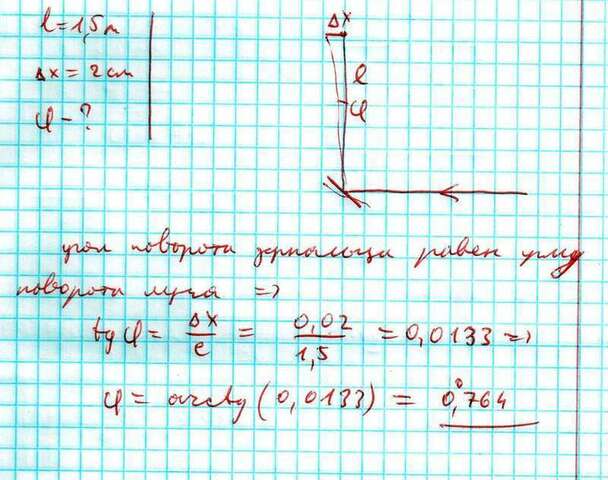 l = 1,5 м
Δx = 2 см
φ - ?
Δx
l
φ
угол поворота зеркальца равен углу
поворота луча =>
tg φ = Δx/l = 0,02/1,5 = 0,0133 =>
φ = arctg (0,0133) = 0,°764